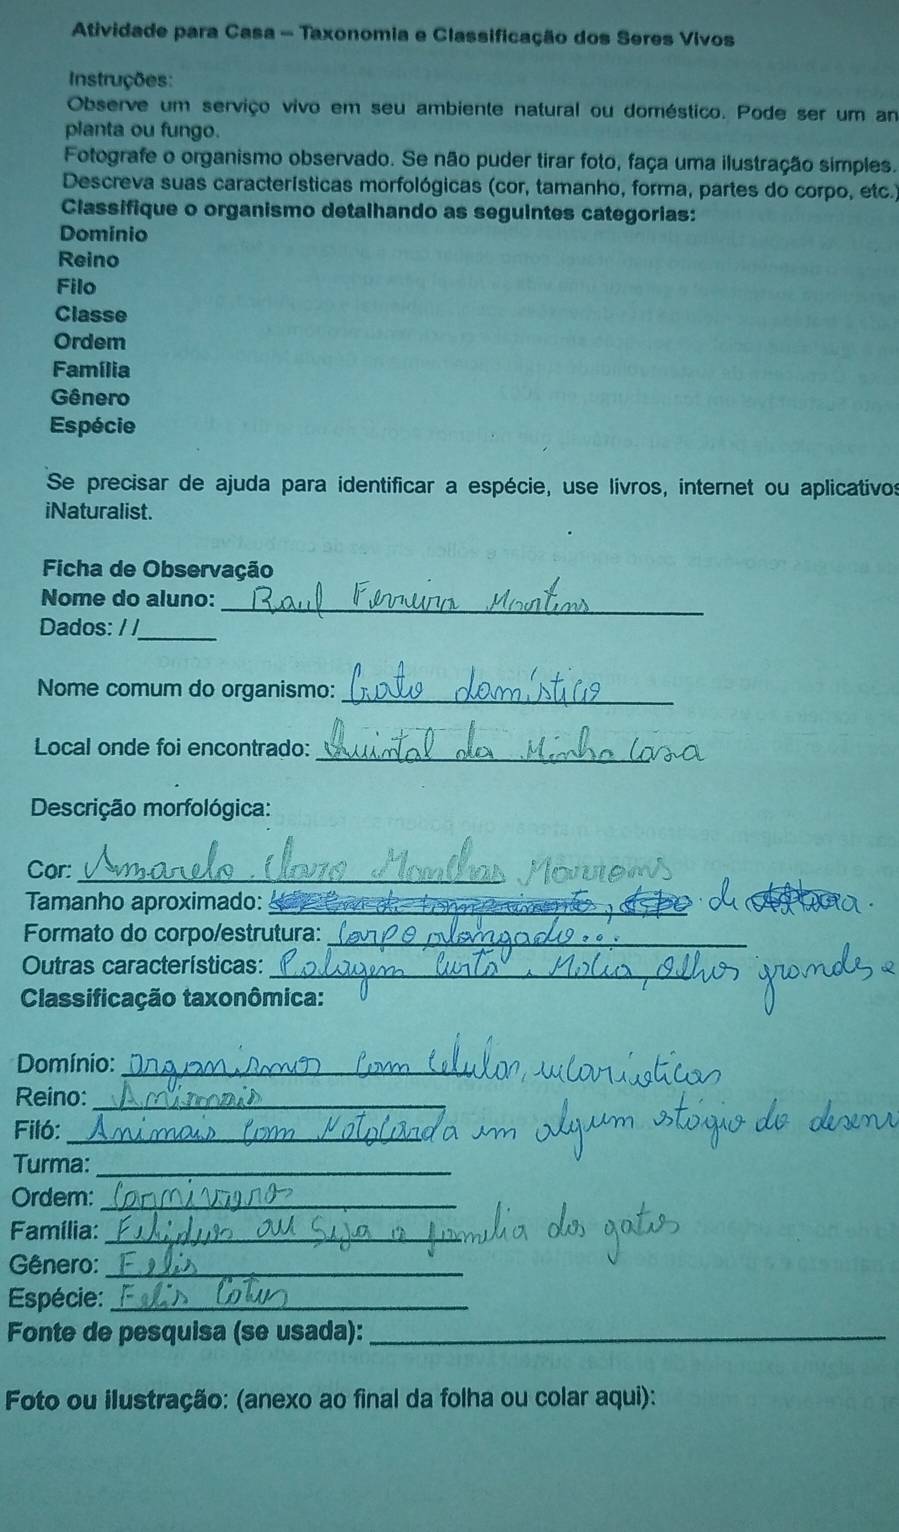 Atividade para Casa – Taxonomia e Classificação dos Seres Vivos
Instruções:
Observe um serviço vivo em seu ambiente natural ou doméstico. Pode ser um an
planta ou fungo.
Fotografe o organismo observado. Se não puder tirar foto, faça uma ilustração simples.
Descreva suas características morfológicas (cor, tamanho, forma, partes do corpo, etc.)
Classifique o organismo detalhando as seguintes categorias:
Domínio
Reino
Filo
Classe
Ordem
Família
Gênero
Espécie
Se precisar de ajuda para identificar a espécie, use livros, internet ou aplicativos
iNaturalist.
Ficha de Observação
Nome do aluno: Raul Ferreira Martins
Dados: / /
Nome comum do organismo: Gato doméstico
Local onde foi encontrado: Quintal da Minha Casa
Descrição morfológica:
Cor: Amarelo. Claro Manchas Marrons
Tamanho aproximado: de
Formato do corpo/estrutura: Corpo alongado...
Outras características: Pelagem Curta, Molia, olhos grandes e
Classificação taxonômica:
Domínio: Organismos Com Celulas, eucarioticas
Reino: Animais
Filó: Animais Com Notocorda em algum estágio de desenv
Turma:
Ordem: Carnivagno
Família: Felideos ou Seja a familia dos gatos
Gênero: Felis
Espécie: Felis Catus
Fonte de pesquisa (se usada):
Foto ou ilustração: (anexo ao final da folha ou colar aqui):